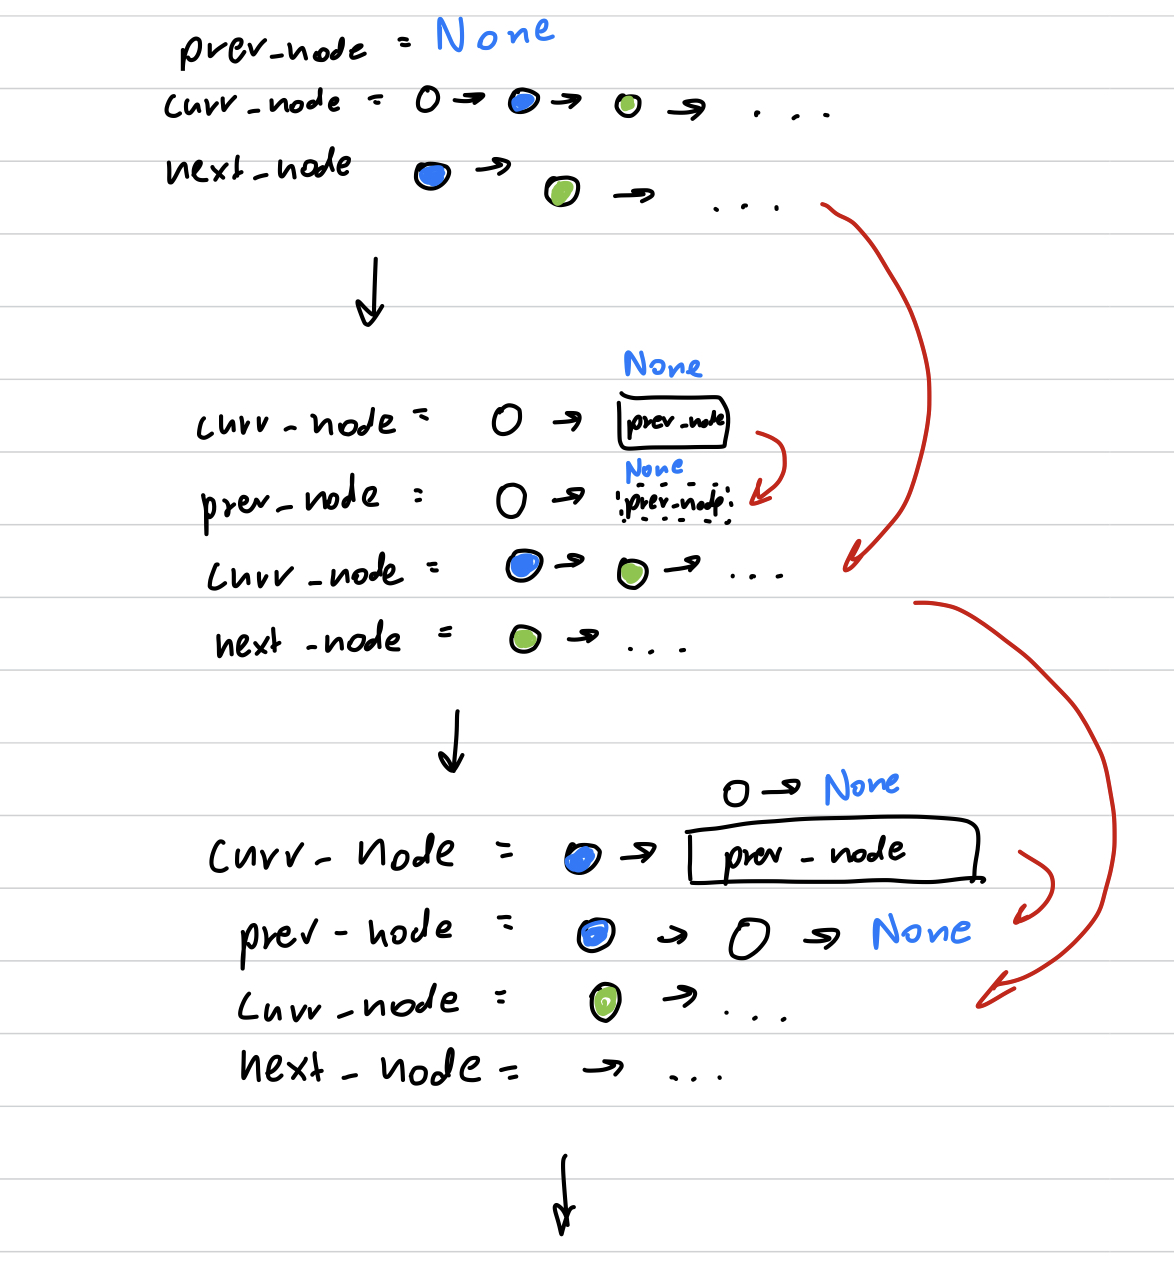 prev_node = None
curr_node = O → → → ...
next_node → → ...
None
curr_node = O → prev_node
None
prev_node = O → prev_node
curr_node = → → ...
next_node = → ...
O → None
curr_node = → prev_node
prev_node = → O → None
curr_node = → ...
next_node = → ...